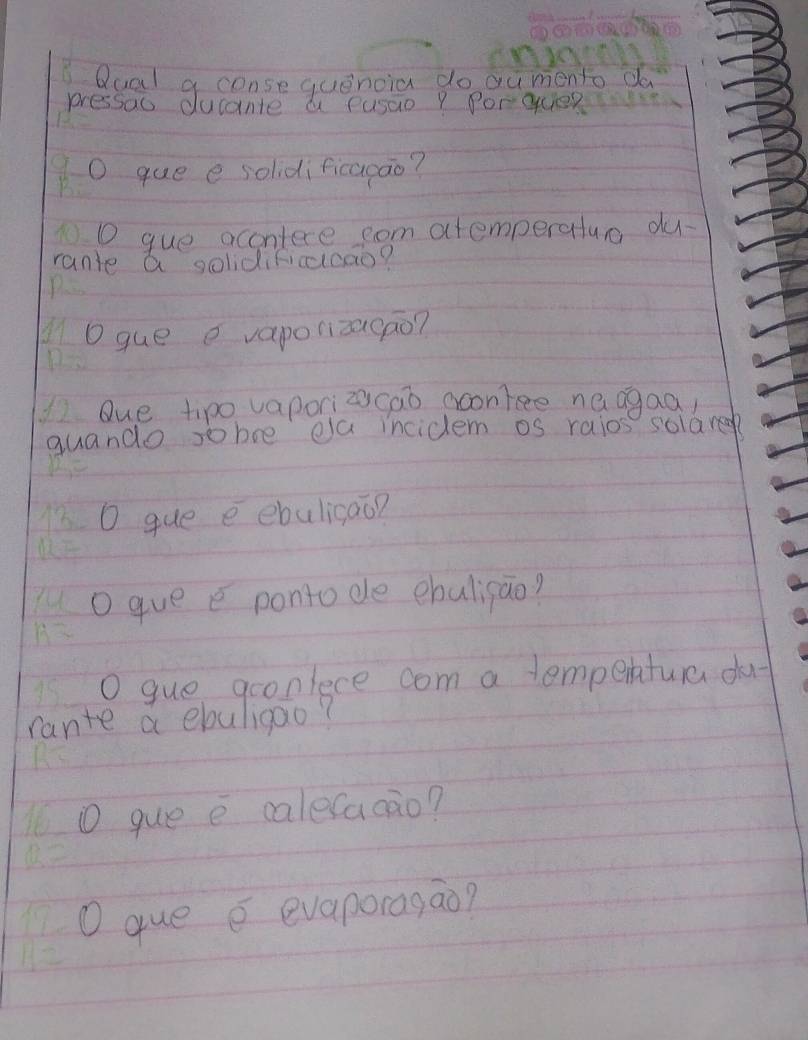 8- Qual a consequência do aumento da
pressão durante a fusão? Por que?
R=
9- O que e solidificação?
R=
10. O que acontece com atemperatura du-
rante a solidificacão?
R=
11 O que é vaporização?
R=
12. Que tipo vaporização acontee na ágaa,
quando sobre ela incidem os raios solares?
R=
13. O que é ebulição?
R=
14 O que é ponto de ebulição?
R=
15. O que acontece com a temperatura du-
rante a ebulição?
R=
16 O que é calefacão?
R=
17. O que é evaporação?
R=